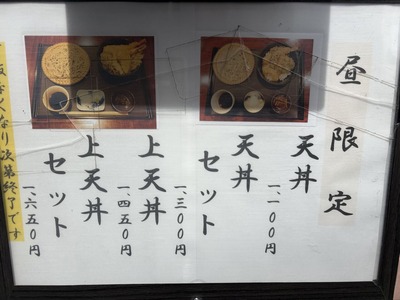 昼限定
天丼
一、一〇〇円
天丼
セット
一、三〇〇円
上天丼
一、四五〇円
上天丼
セット
一、六五〇円
なくなり次第終了です